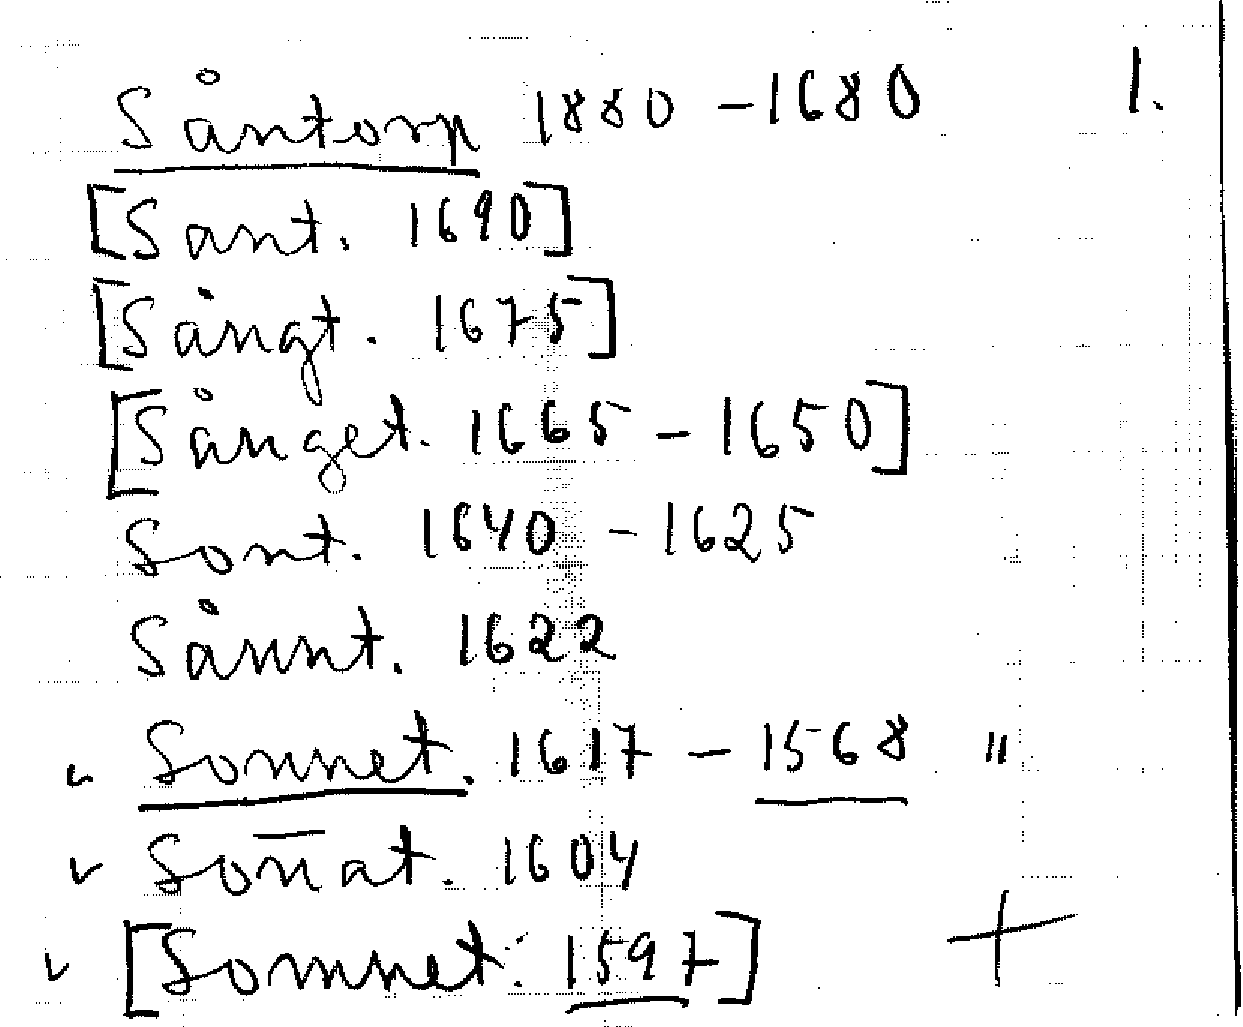 Såntorp 1880 - 1680 1.
[Sant. 1690]
[Sångt. 1675]
[Sånget. 1665 - 1650]
Sont. 1640 - 1625
Sånnt. 1622
Sonnet. 1617 - 1568 "
v Son̄at. 1604
v [Somnet. 1597] +